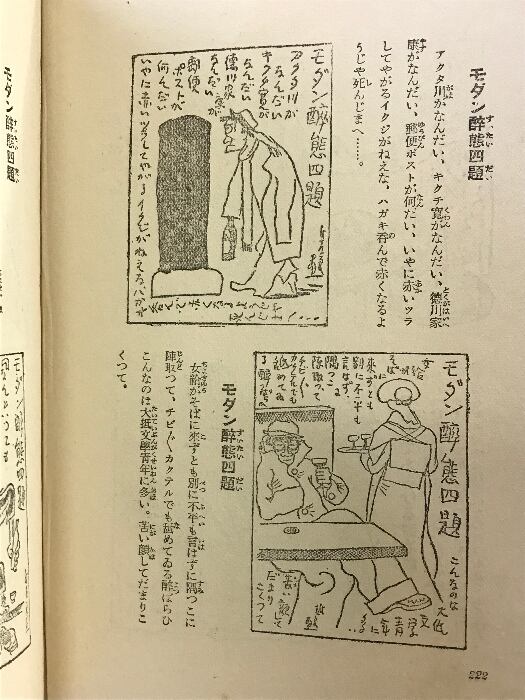 モダン醉態四題
アクタ川がなんだい、キクチ寛がなんだい、德川家
康がなんだい、郵便ポストが何だい、いやに赤いツラ
してやがるイクジがねえな、ハガキ呑んで赤くなるよ
うじや死んじまへ……。
モダン醉態四題
アクタ川が
なんだい
キクチ寛が
なんだい
德川家
康が
なんだい
郵便
ポストが
何んだい
いやに赤いツラしてやがるイクジがねえな、ハガキ
呑んで赤くなるようじや
死んじまへ…
モダン醉態四題
女給が
そばに
來ずとも
別に不平も
言はず、
隅つこに
陣取つて
チビ〳〵
カクテルでも
舐めてゐる
醉ぱらひ
こんなのは
大低
文学
青年
に
多い
苦い顔して
だまり
こくつて
モダン醉態四題
女給がそばに來ずとも別に不平も言はずに隅つこに
陣取つて、チビ〳〵カクテルでも舐めてゐる醉ぱらひ
こんなのは大抵文學靑年に多い。苦い顏してだまりこ
くつて。
モダン醉態四題
222